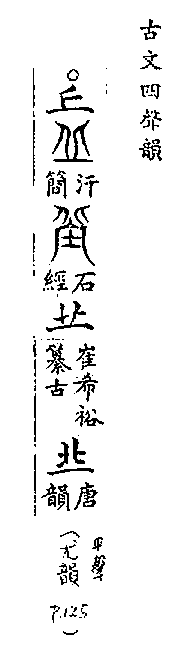 古文四聲韻
丘
汗簡
石經
崔希裕纂古
丠
唐韻
(平聲
尤韻
P.125)